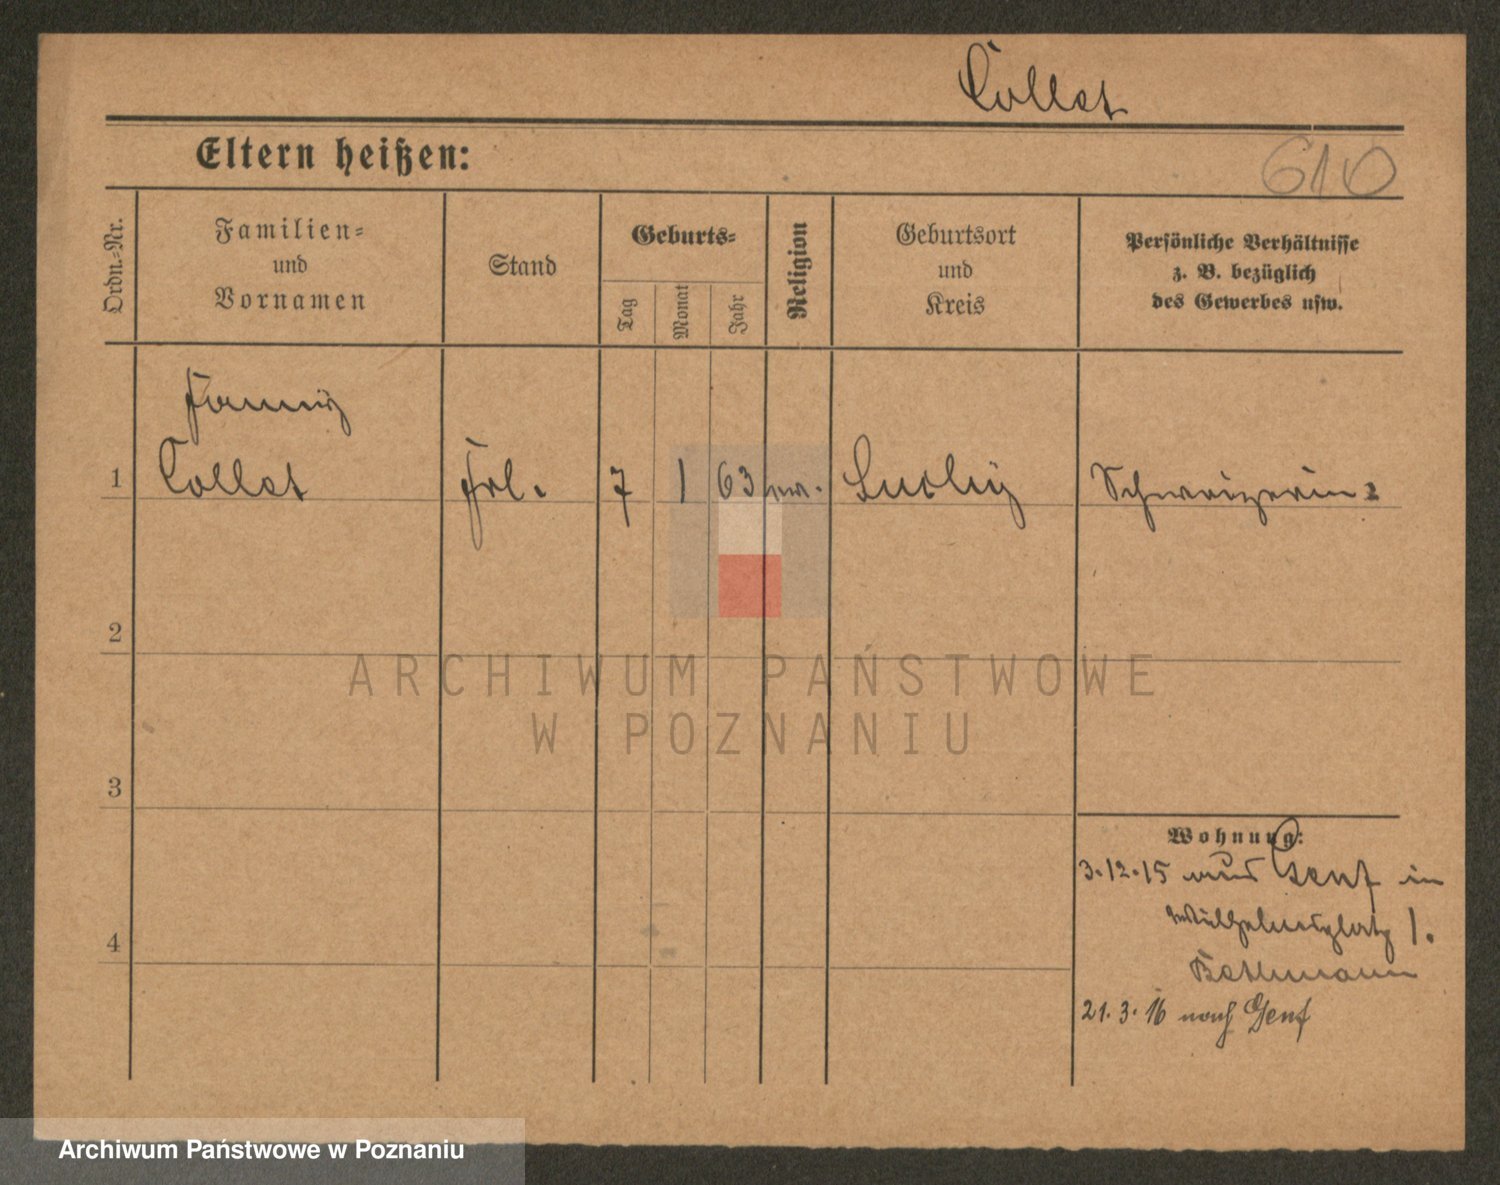 Collet
Eltern heißen:
610
Ordn.-Nr.
Familien-
und
Vornamen
Stand
Geburts-
Tag
Monat
Jahr
Religion
Geburtsort
und
Kreis
Persönliche Verhältnisse
z. B. bezüglich
des Gewerbes usw.
Fanny
1 Collet Frl. 7 1 63 Schweizerin
2
3
4
Wohnung:
3.12.15 aus Genf in
Wilhelmsplatz 1.
Bethmann
21.3.16 nach Genf
ARCHIWUM PAŃSTWOWE
W POZNANIU
Archiwum Państwowe w Poznaniu